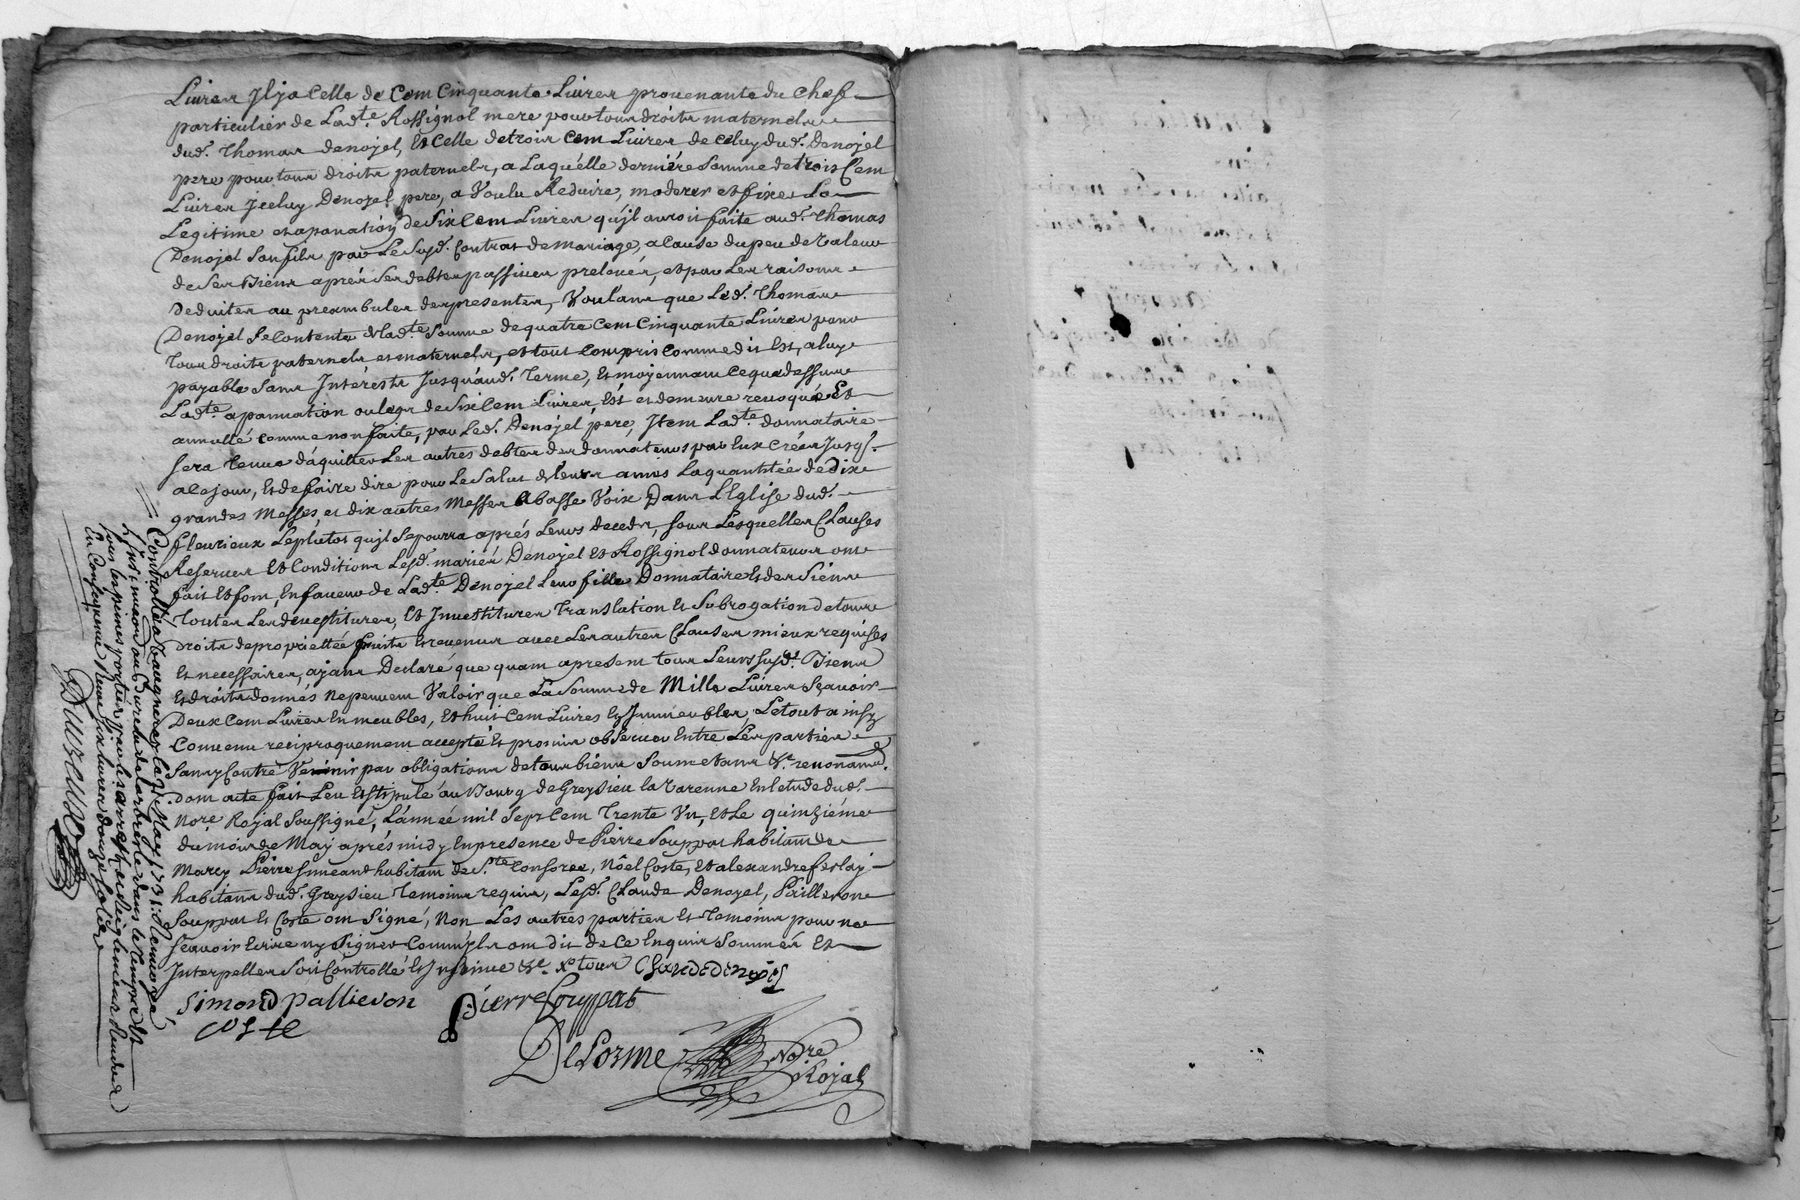 Livres Ilya Celle de Cent Cinquante Livres provenante du chef
particulier de Lad.te Rossignol mere pour tous droits maternels
dud. Thomas denoyel, Et Celle de trois Cent Livres de celuy dud. Denoyel
pere pour tous droits paternels, a Laquelle derniére Somme de trois Cent
Livres Jceluy Denoyel pere, a Voulu Reduire, moderer et fixer La
Legitime et apanation de Six Cent Livres qu'jl auroit faite aud. Thomas
Denoyel Son fils par Le Susd. Contrat de mariage, a Cause du peu de Valeur
de Ses Biens aprés Ses debtes passives prelevés, et par Les raisons
Deduites au preambule des presentes, Voulant que Led. Thomas
Denoyel Se Contente de Lad.te Somme de quatre Cent Cinquante Livres pour
Tous droits paternels et maternels, et tout Compris Comme dit Est, a luy
payable Sans Intérests Jusqu'aud. Terme, Et moyennant Ce que dessus
Lad.te apannation ou legs de Six Cent Livres, Est et demeure révoquée Et
annullé comme non faite, par Led. Denoyel pere, Jtem Lad.te donnataire
Sera Tenue d'aquitter Les autres debtes des donnateurs par Eux Créés Jusq.
a Ce jour, Et de faire dire pour Le Salut de leurs ames La quantitée de dix
grandes Messes et dix autres Messes a basse Voix Dans L'Eglise dud.
fleurieux Leplutos qu'jl Se pourra aprés Leurs decedz, Sous Lesquelles Clauses
Reserves Et Conditions Lesd. mariés Denoyel Et Rossignol donnateurs ont
fait Et font, En faveur de Lad.te Denoyel Leur fille Donnataire Et des Siens
Toutes Les devestitures, Et Jnvestitures Translation Et Subrogation de tous
Droits de propriettée fruits Et revenus avec Les autres Clauses mieux requises
Et necessaires, ajant Declaré que quant apresent tous Leurs susd. Biens
Et droits donnés ne peuvent Valoir que La Somme de Mille Livres Sçavoir
Deux Cent Livres En meubles, Et huit Cent Livres En Jmmeubles, Le tout ainsy
Convenu reciproquement accepté Et promis observer Entre Les parties
Sans y Contre Venir par obligations de tous biens Soumetans &c renonsant.
dont acte fait Leu Et Stipulé au Bourg de Greysieu la Varenne En Letude dud.
No.re Royal Soussigné, L'année mil Sept Cent Trente Un, Et Le quinziéme
du mois de May aprés midy En presence de Pierre Souppat habitant de
Marcy Pierre Simeant habitant de S.te Consorce, Nöel Coste, Et alexandre ferlay
habitans dud. Greysieu Temoins requis, Lesd. Claude Denoyel, Pailleron
Souppat Et Coste ont Signé, Non Les autres parties Et Temoins pour ne
Sçavoir Ecrire ny Signer Comm'jls ont dit de Ce Enquis Sommés Et
Interpellés Soit Controllé Et Jnsinué &c
Claude denoyel
Simond pallieron
Pierre Souppat
coste
DeLorme No.re Royal
Controllé a tavernes le 17 May 1731. Renvoyé
a L'insinuation au Bureau de Larbresle dans le temps et
sous les peines portées